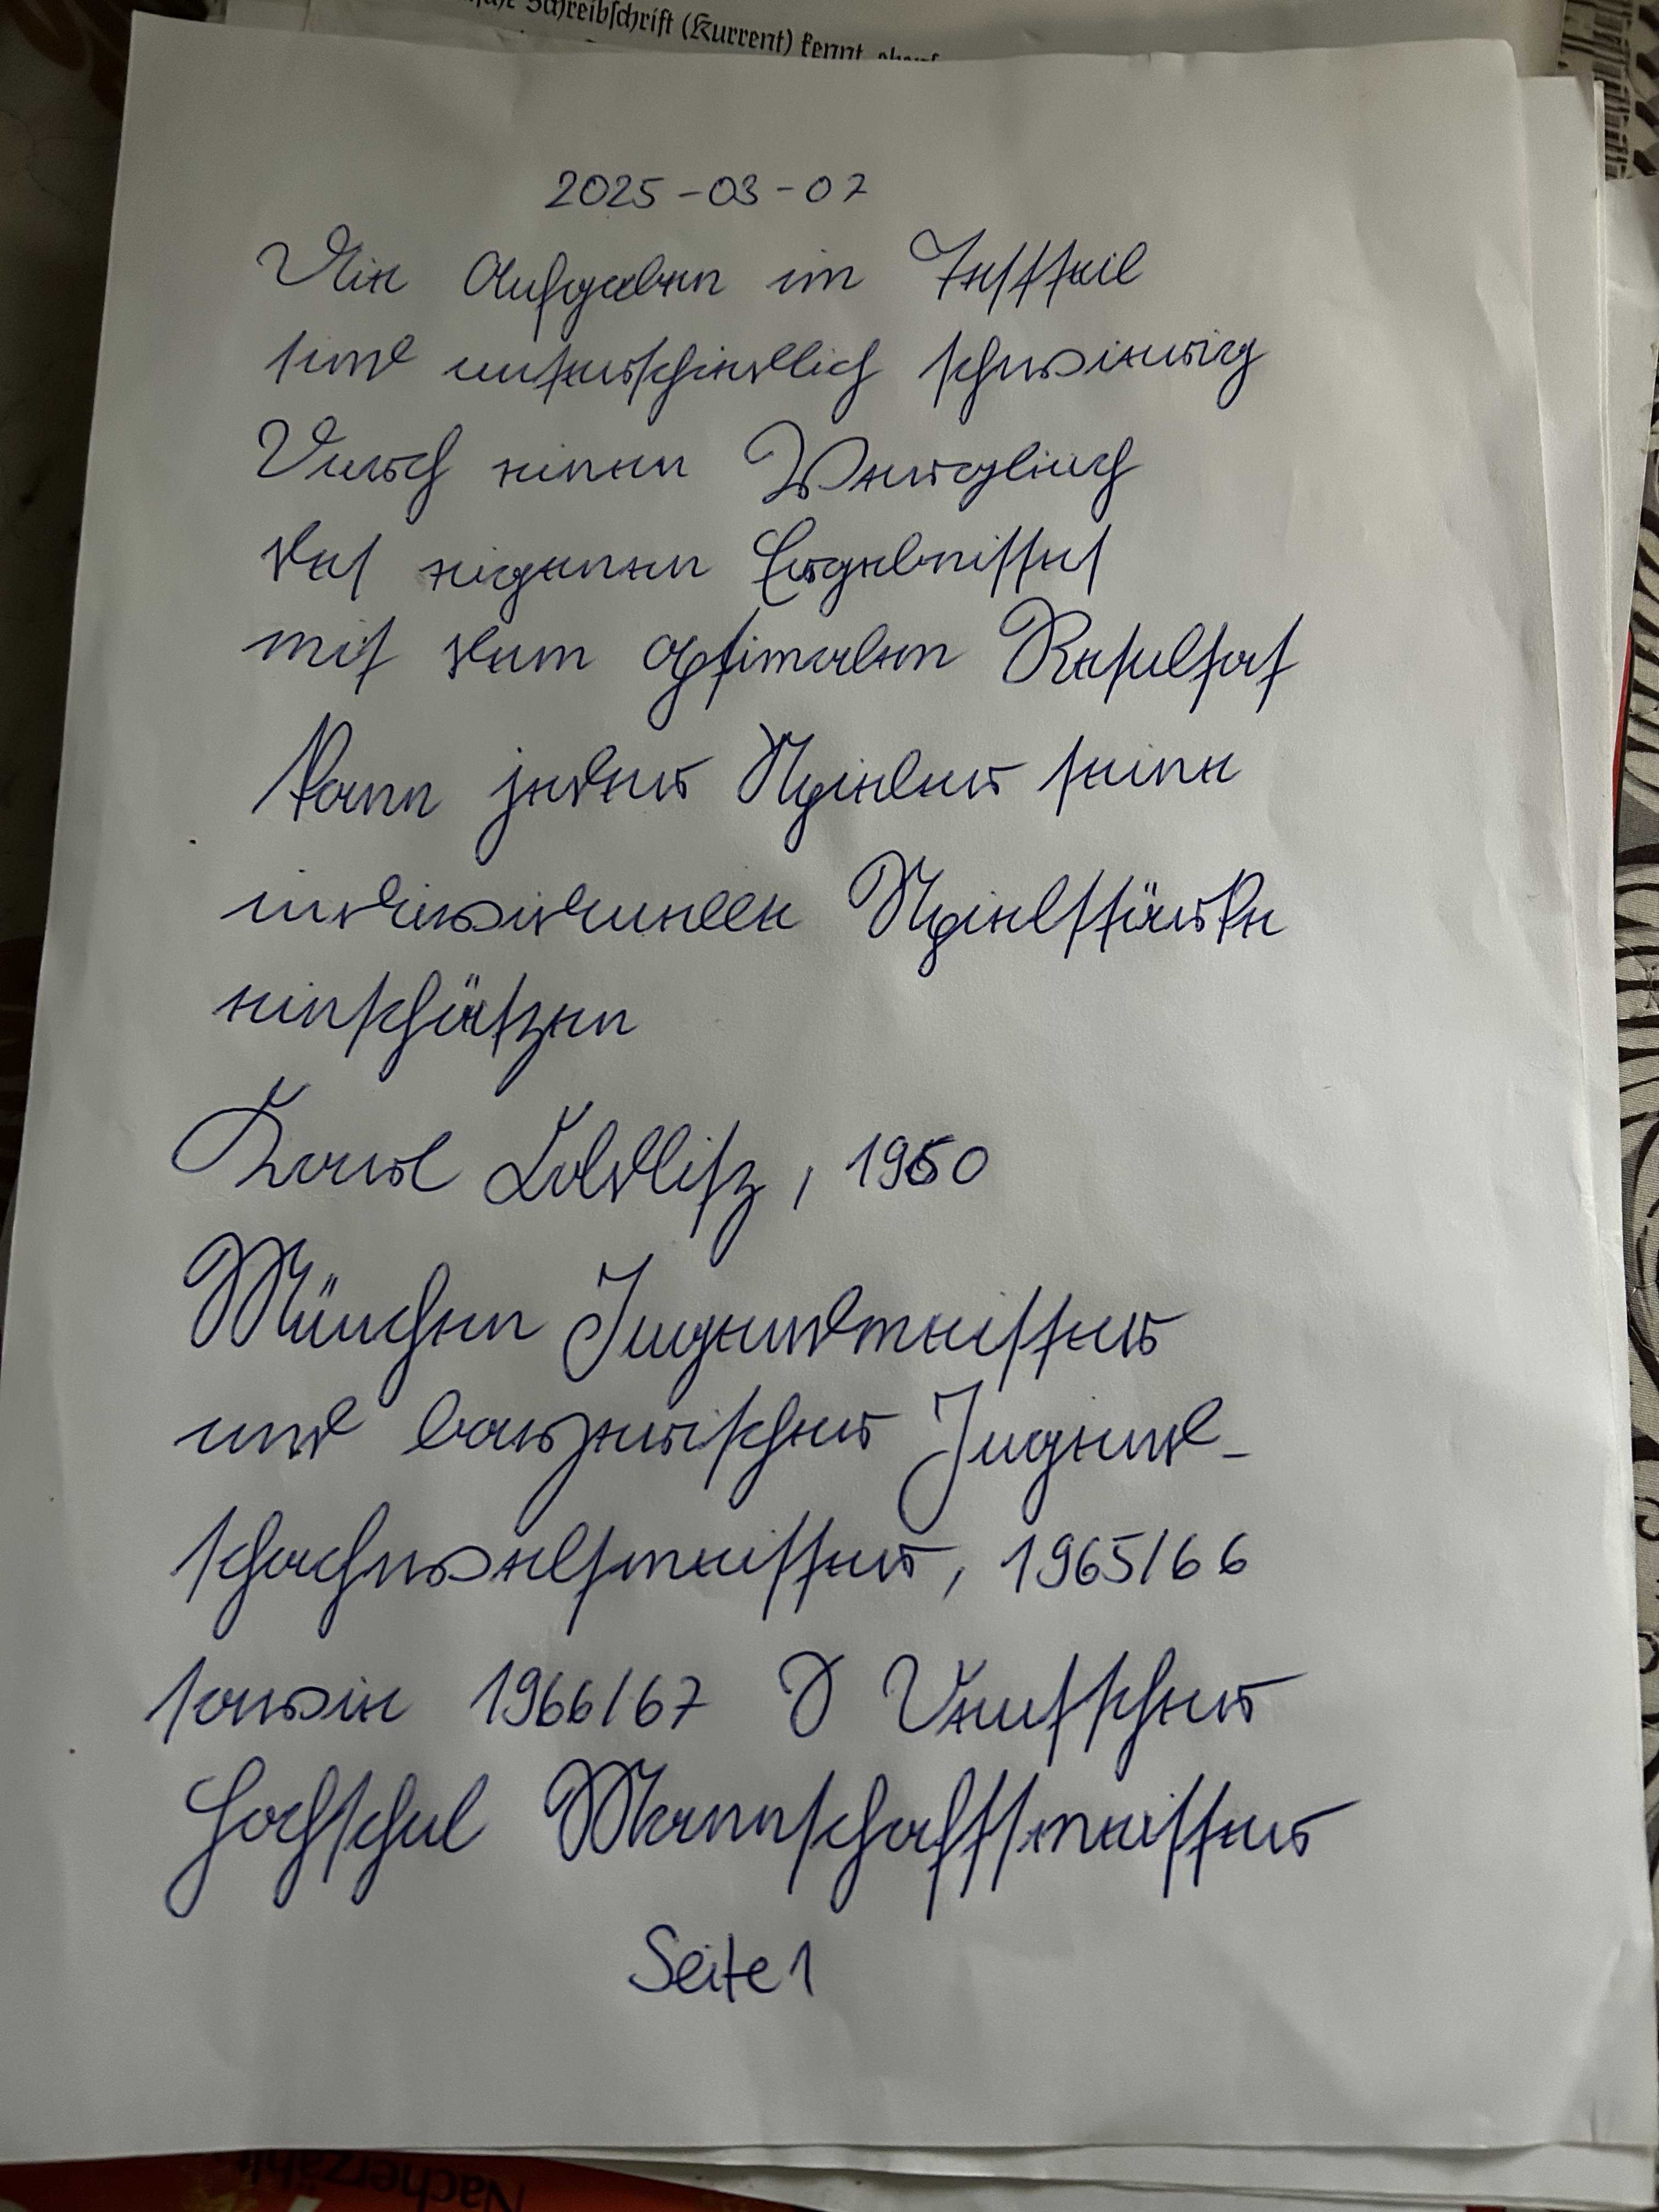 Schreibschrift (Kurrent) kennt, eben
2025-03-07
Die Aufgaben im Testteil
sind unterschiedlich schwierig
Durch einen Vergleich
des eigenen Ergebnisses
mit dem optimalen Resultat
kann jeder Spieler seine
individuelle Spielstärke
einschätzen
Karl Lobdlitz, 1960
München Jugendmeister
und bayerischer Jugend-
schachweltmeister, 1965/66
sowie 1966/67 D Deutscher
Hochschul Mannschaftsmeister
Seite 1
Nacherzähl